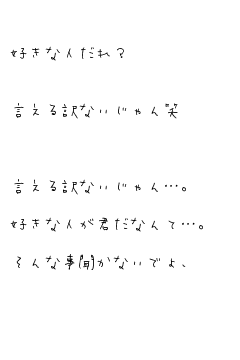 好きな人だれ？
言える訳ないじゃん笑
言える訳ないじゃん…。
好きな人が君だなんて…。
そんな事聞かないでよ、